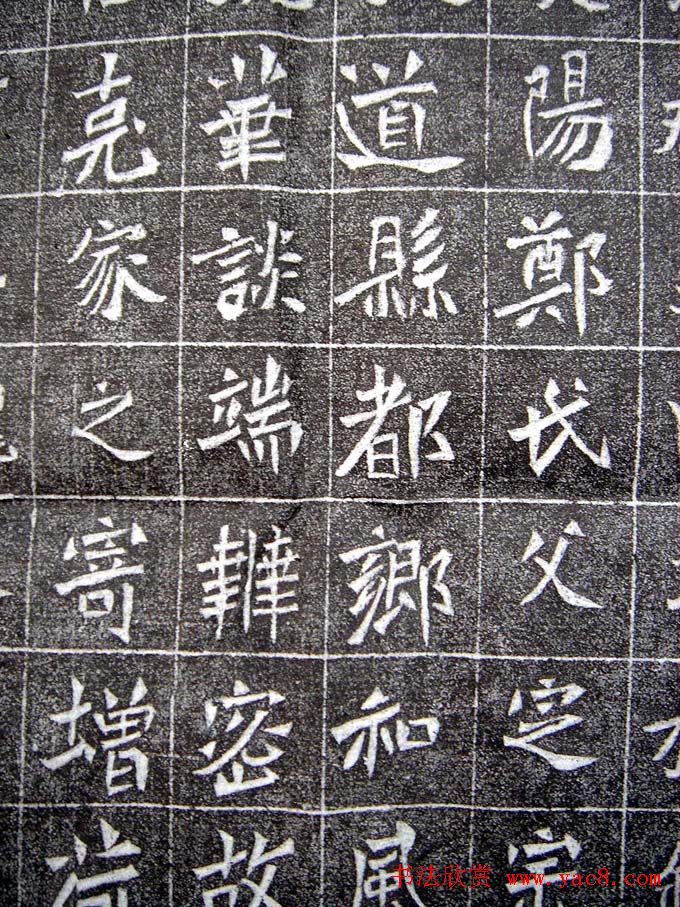 陽鄭氏父定宗
道縣都鄉和風
華談端韡密故
亮家之寄增荷
书法欣赏 www.yac8.com